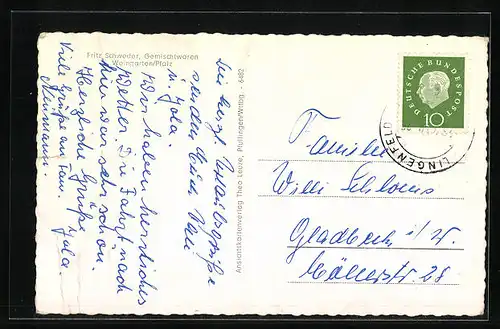 Fritz Schweder, Gemischtwaren
Weingarten/Pfalz
Die herzl. Urlaubsgrüße
senden Euch
u. Jola.
Wir haben herrliches
Wetter. Die Fahrt nach
hier war sehr schön.
Herzliche Grüße Jola
Viele Grüße an Fam.
Neumann.
Ansichtskartenverlag Theo Leutze, Pfullingen/Württbg. · 6482
DEUTSCHE BUNDESPOST
10
LINGENFELD
Familie
Willi Schloms
Gladbeck i/W.
28